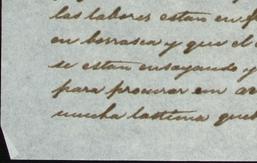 las labores estan en f
en borrasca y que el
se estan ensayando y
para procurar em ar
mucha lastima que